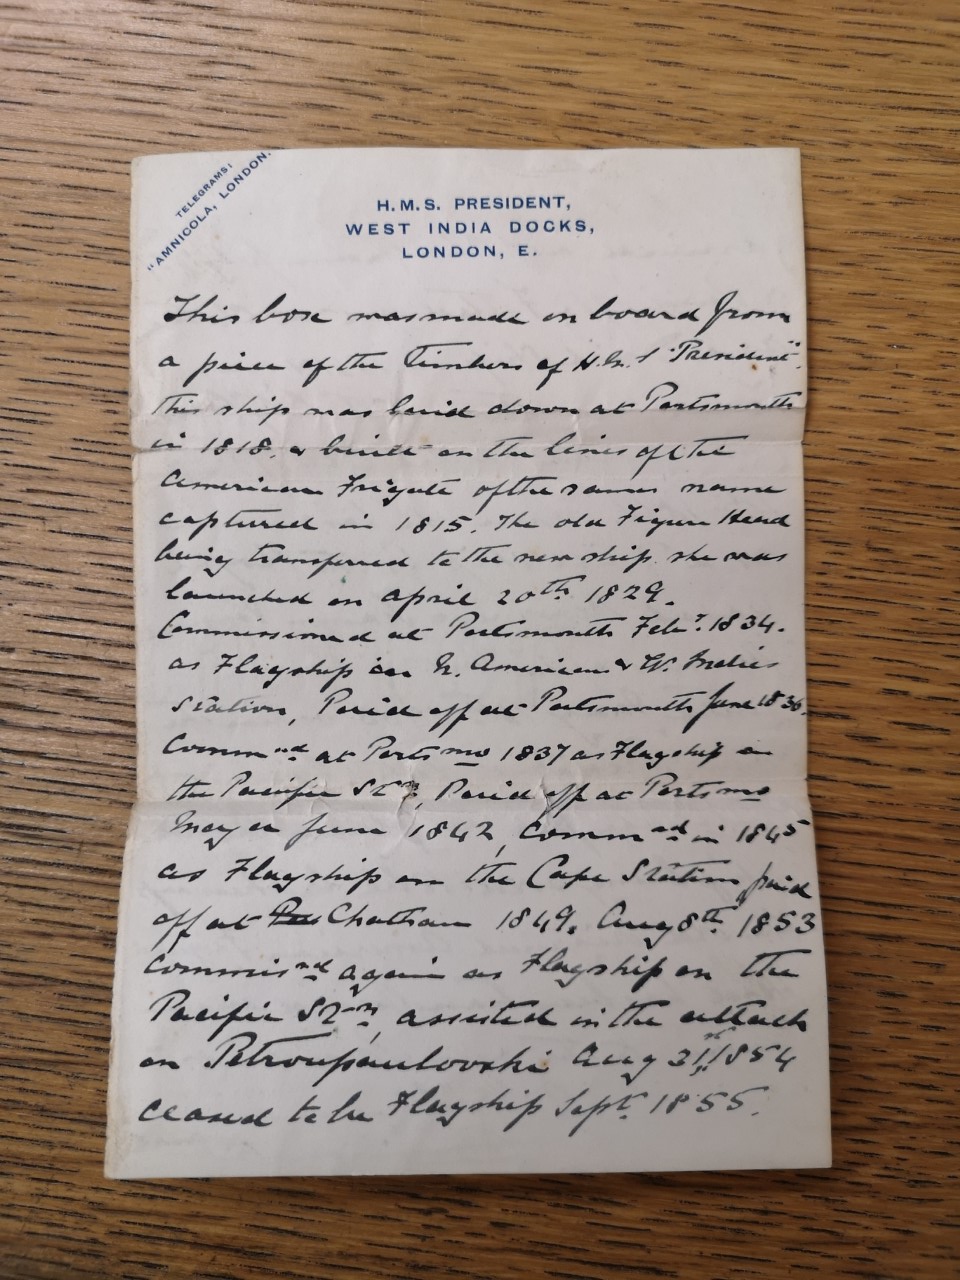 TELEGRAMS:
"AMNICOLA, LONDON."
H.M.S. PRESIDENT,
WEST INDIA DOCKS,
LONDON, E.
This box was made on board from
a piece of the Timbers of H.M.S "President".
this ship was laid down at Portsmouth
in 1818, & built on the lines of the
American Frigate of the same name
captured in 1815. The old Figure Head
being transferred to the new ship. she was
launched on April 20th 1829.
Commissioned at Portsmouth Feby. 1834.
as Flagship on N. American & W. Indies
station, Paid off at Portsmouth June 1836.
Commnd at Portsmo 1837 as Flagship on
the Pacific Stn, Paid off at Portsmo
May or June 1842, Commnd in 1845
as Flagship on the Cape Station paid
off at Chatham 1849. Aug 8th 1853
Commisnd again as Flagship on the
Pacific Stn, assisted in the attack
on Petroupaulovski Aug 31st 1854
ceased to be Flagship Sept. 1855.